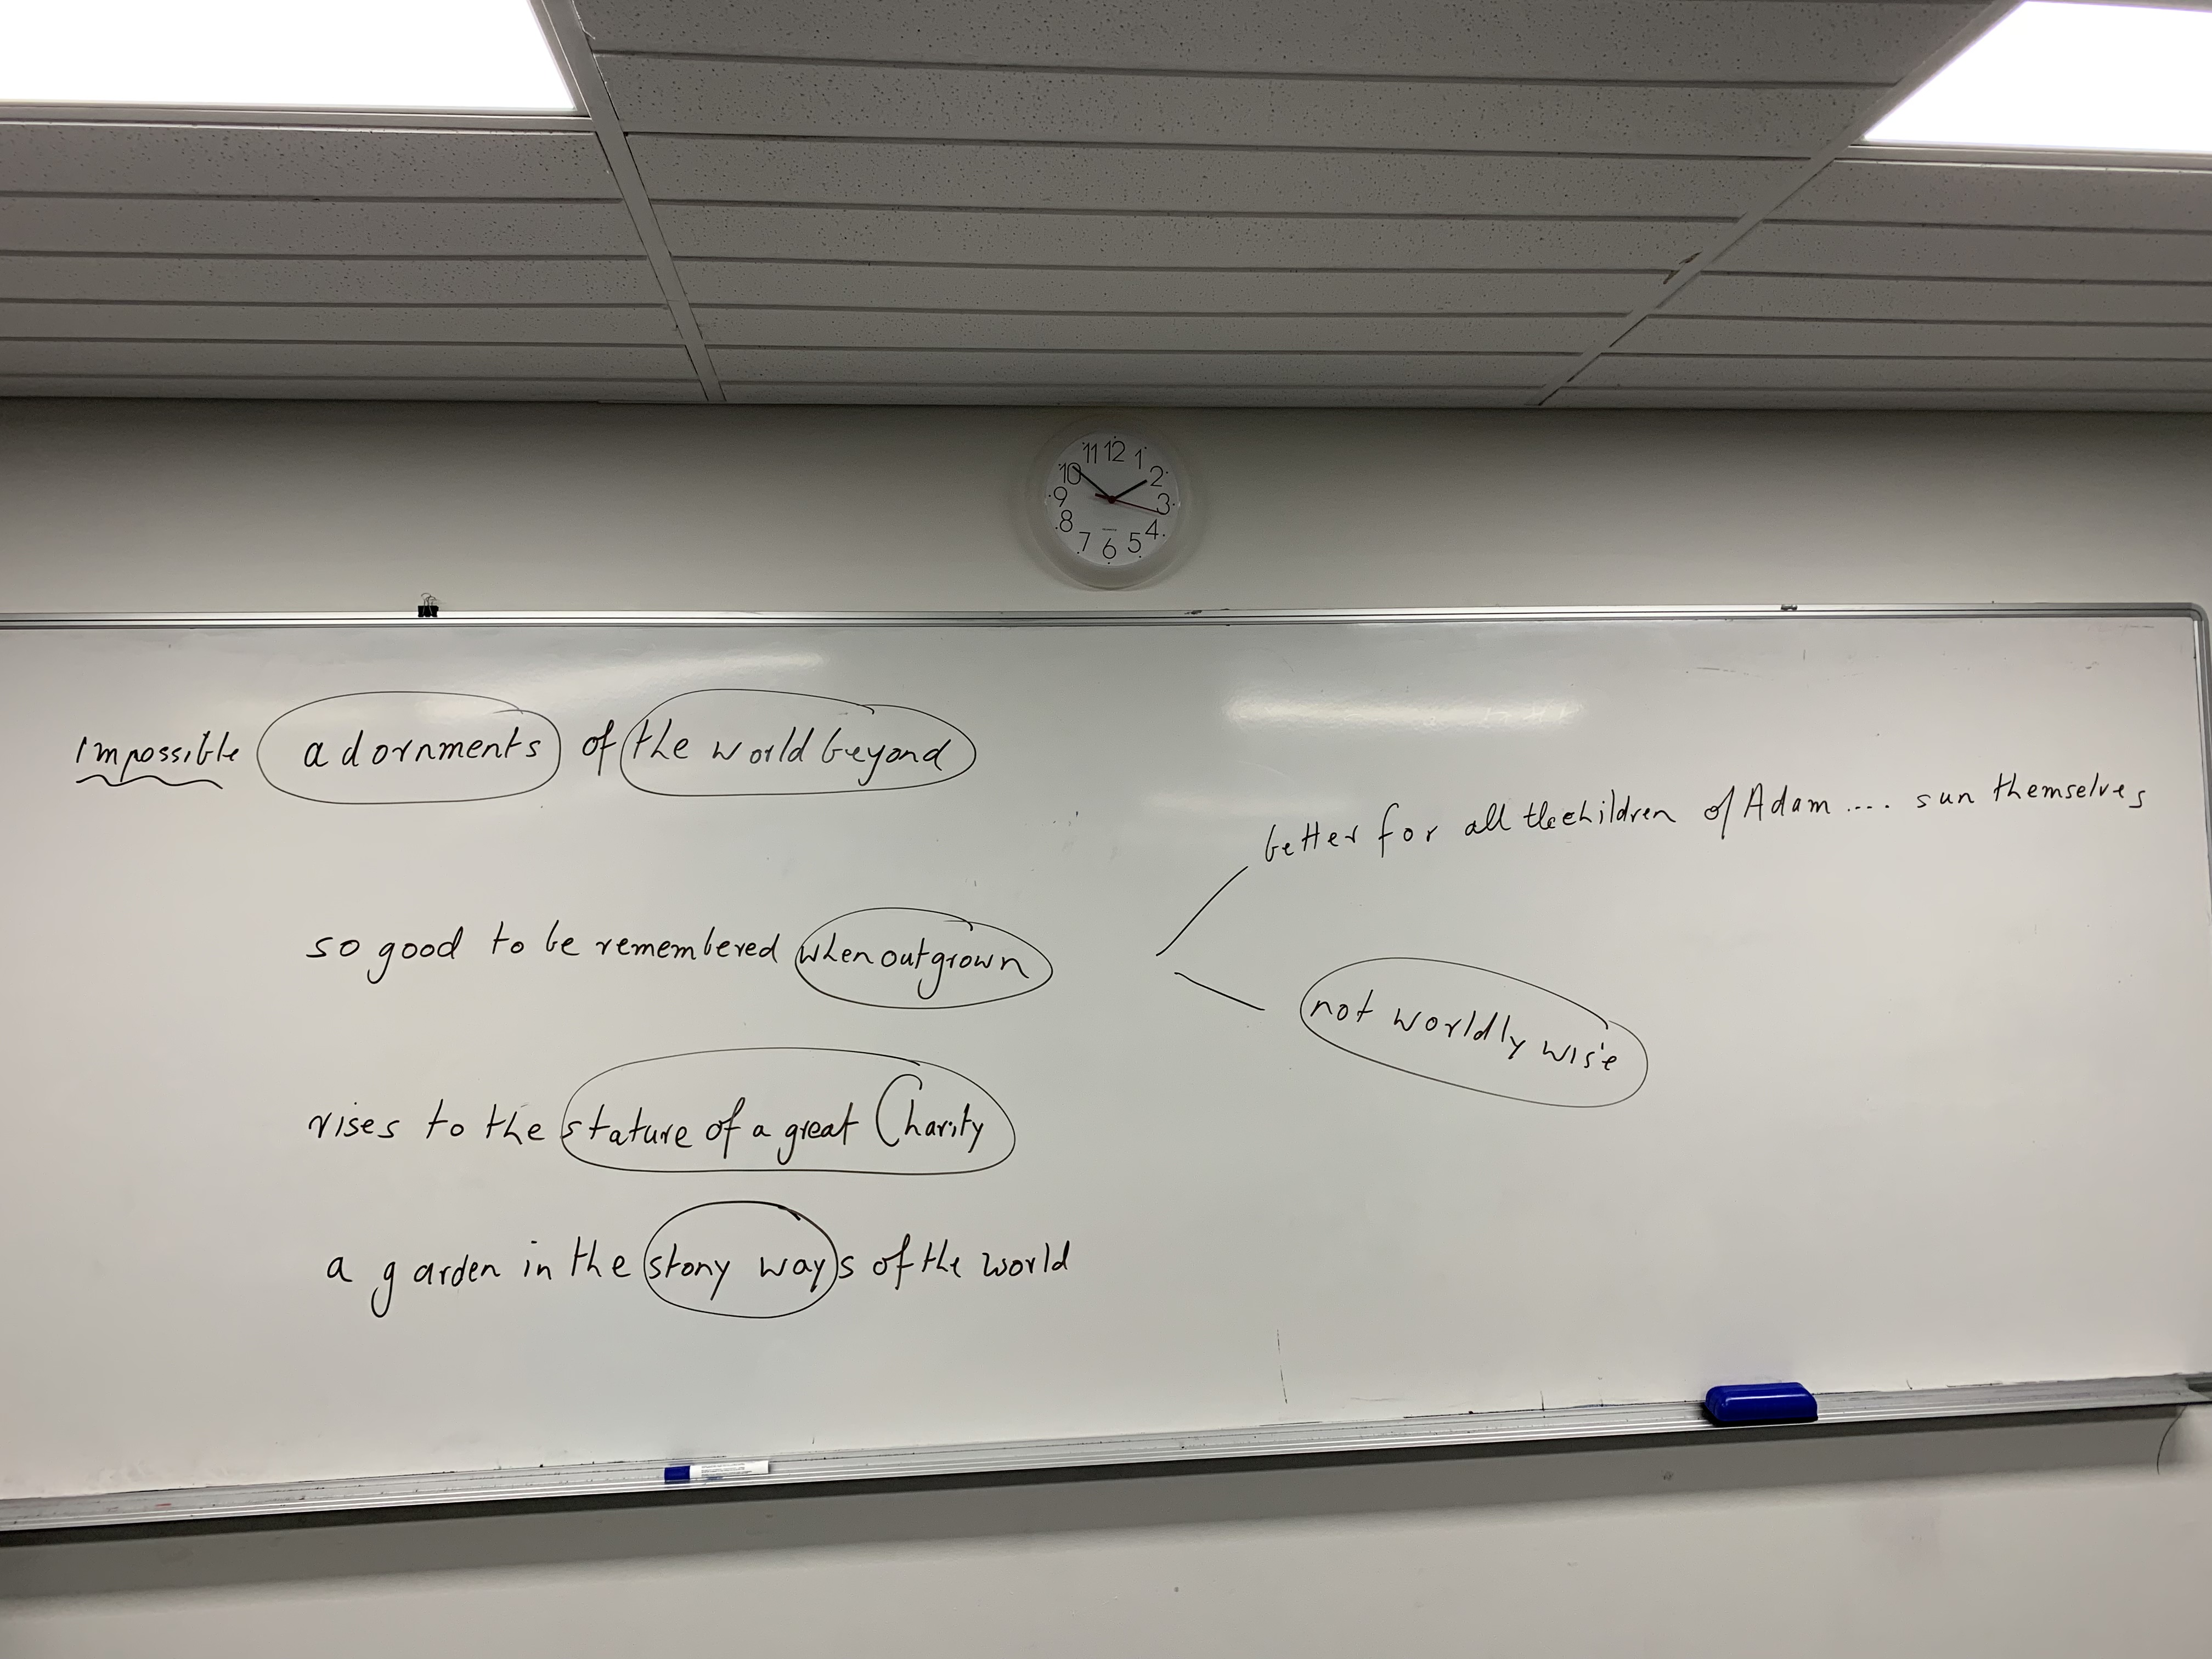 11 12 1
10 2
9 3
8 4
7 6 5
Impossible adornments of the world beyond
better for all the children of Adam .... sun themselves
so good to be remembered when outgrown
not worldly wise
rises to the stature of a great Charity
a garden in the stony ways of the world